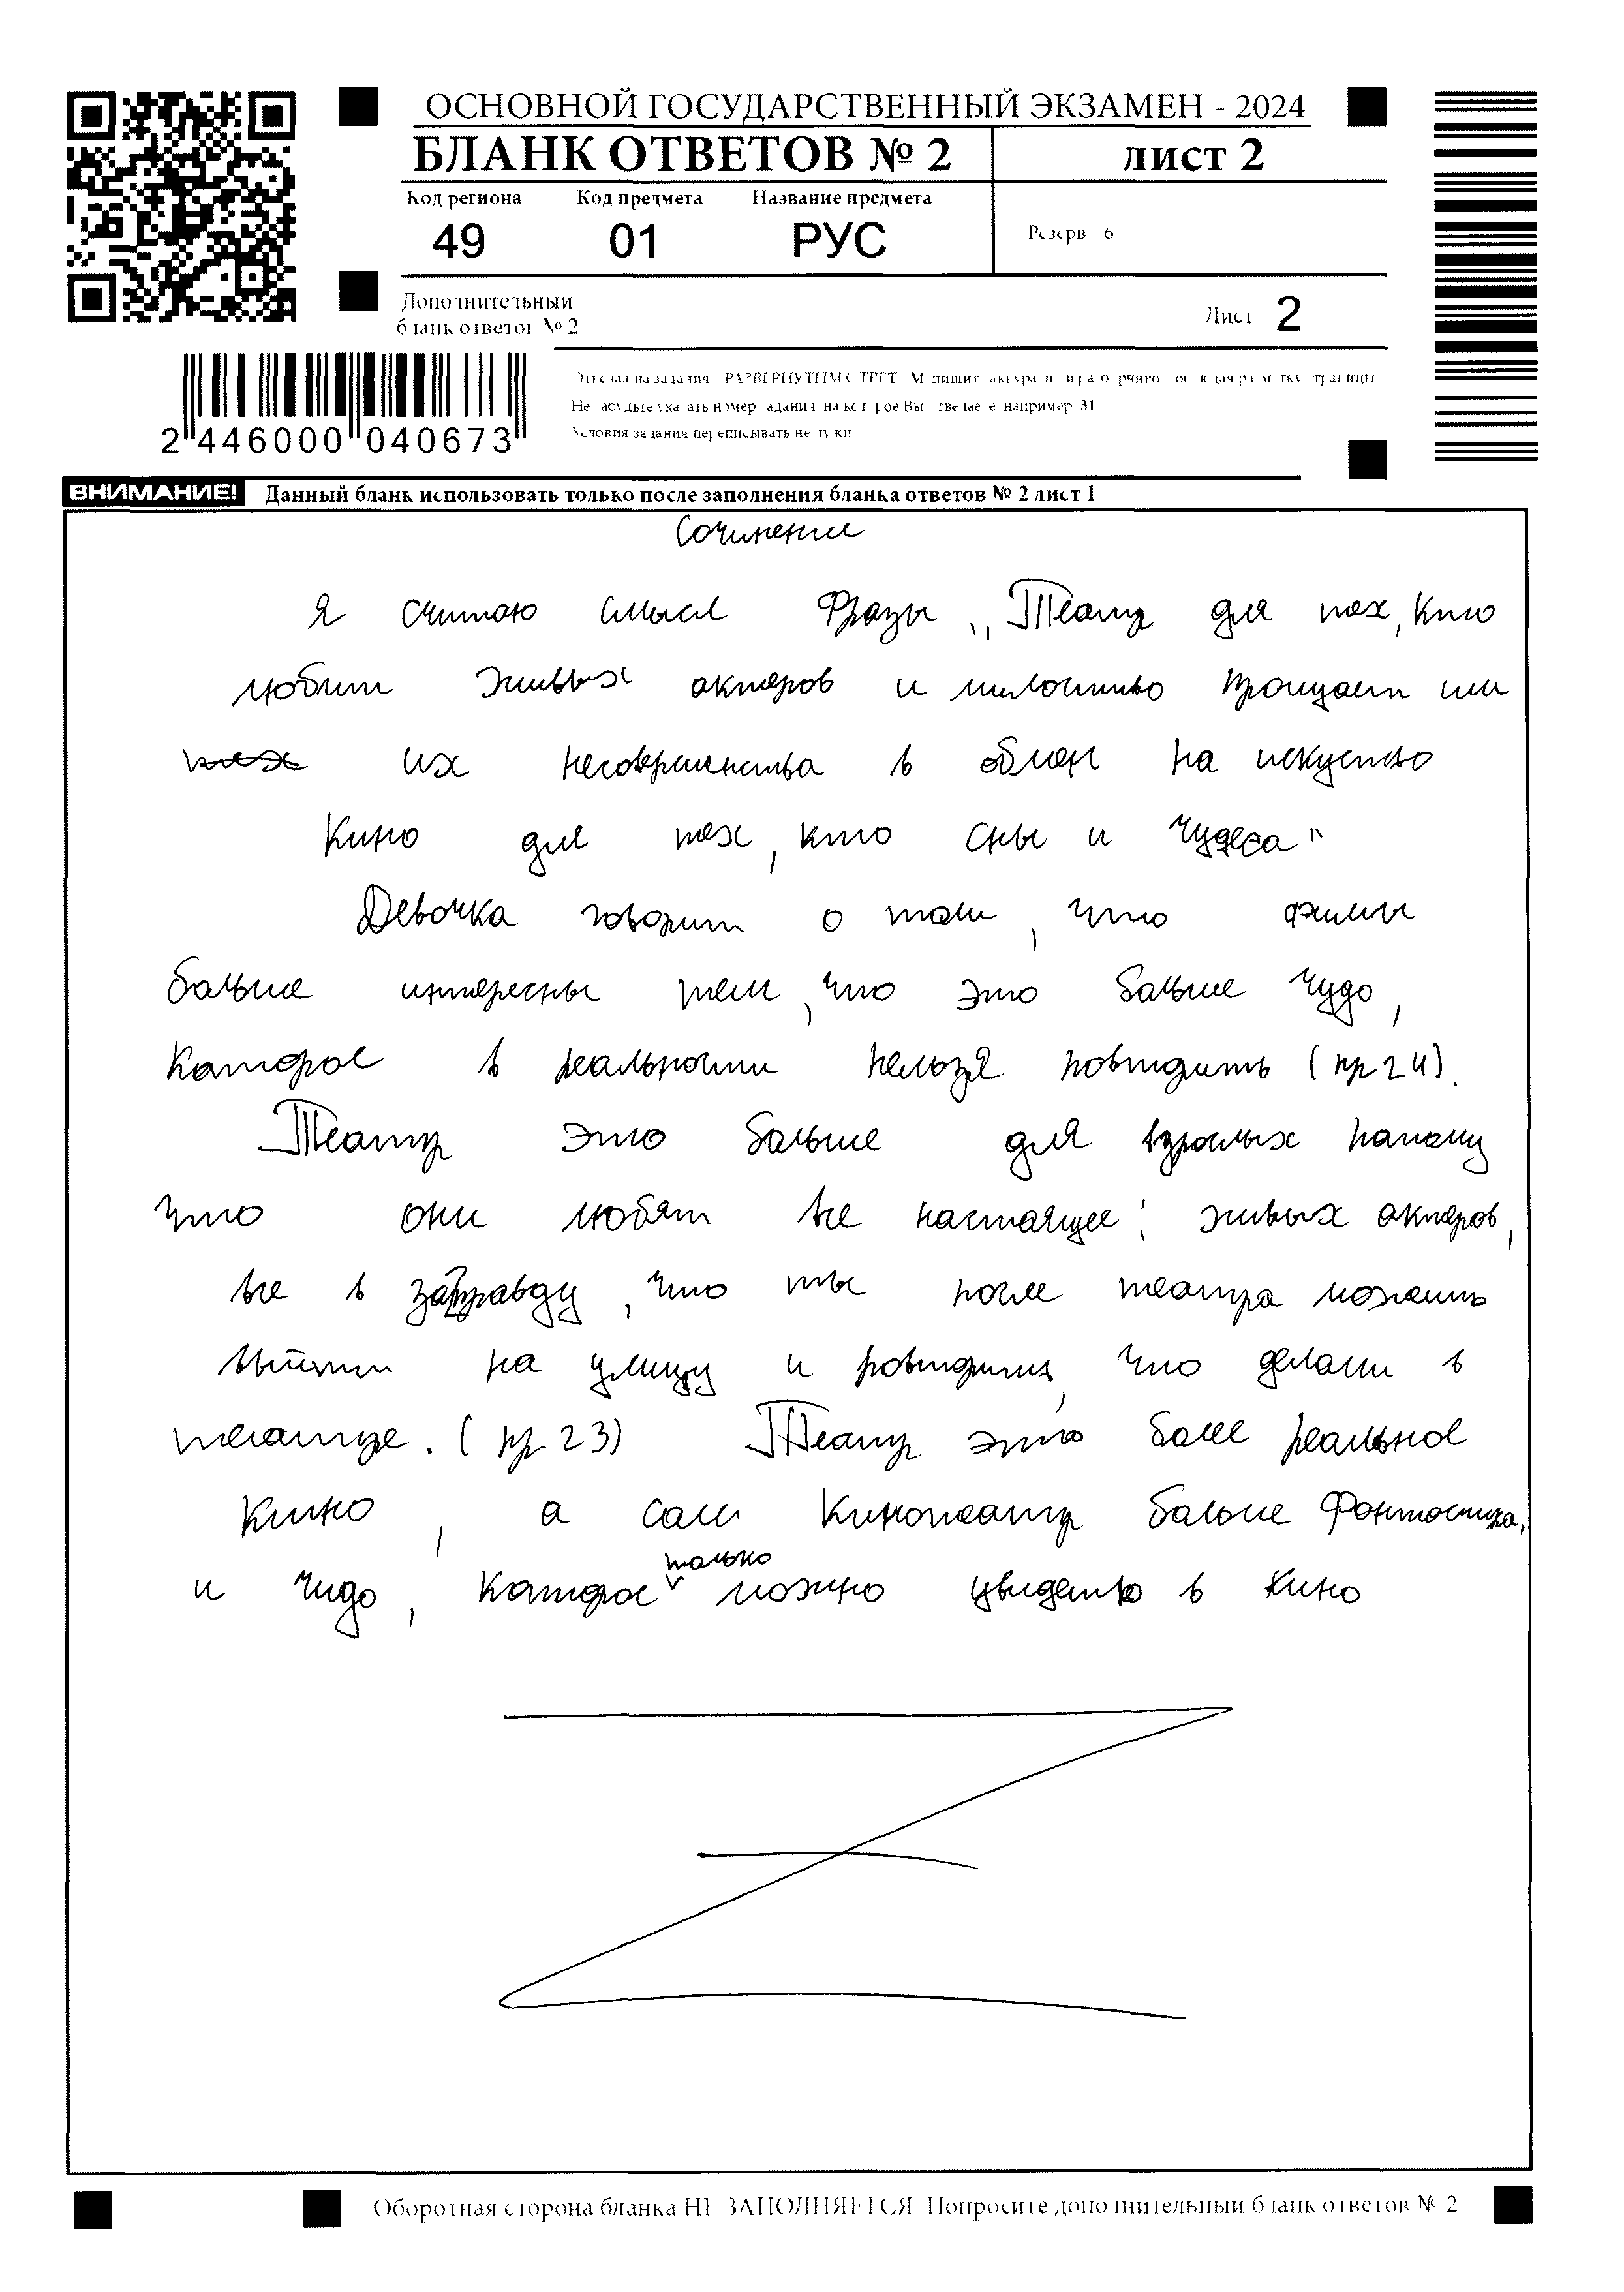 ОСНОВНОЙ ГОСУДАРСТВЕННЫЙ ЭКЗАМЕН - 2024
БЛАНК ОТВЕТОВ № 2
лист 2
Код региона Код предмета Название предмета
49 01 РУС
Резерв 6
Дополнительный
бланк ответов № 2
Лист 2
2 446000 040673
Условия задания переписывать не нужн
ВНИМАНИЕ! Данный бланк использовать только после заполнения бланка ответов № 2 лист 1
Сочинение
Я считаю смысл фразы „Театр для тех, кто
любит живых актеров и милостиво прощает им
их несовершенства в обмен на искуство
Кино для тех, кто сны и чудеса"
Девочка говорит о том, что фильмы
больше интересны тем, что это больше чудо,
которое в реальности нельзя повтодить (пр 24).
Театр это больше для взрослых потому
что они любят все настоящее: живых актеров,
все в заправду, что ты после театра можешь
выйти на улицу и повтодить, что делали в
театре. (пр 23) Театр это более реальное
кино, а сам кинотеатр больше фонтостика,
и чудо, которое только можно увидеть в кино
Оборотная сторона бланка НЕ ЗАПОЛНЯЕТСЯ Попросите дополнительный бланк ответов № 2